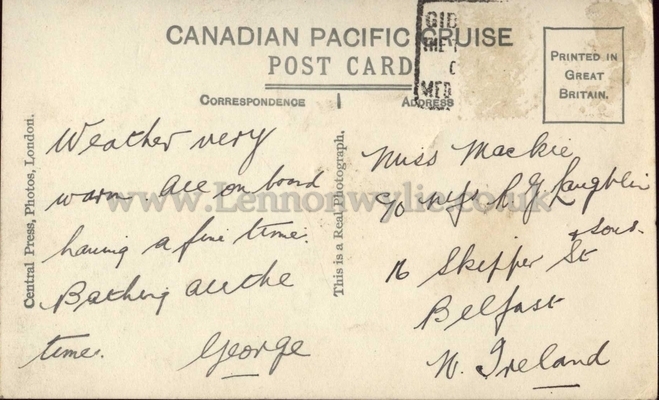 CANADIAN PACIFIC CRUISE
POST CARD
CORRESPONDENCE
ADDRESS
PRINTED IN
GREAT
BRITAIN.
GIB
THE
MED
Central Press, Photos, London.
This is a Real Photograph.
www.Lennonwylie.co.uk
Weather very
warm. All on board
having a fine time.
Bathing all the
time. George
Miss Mackie
c/o Messrs R G Laughlin
& Sons.
16 Skipper St
Belfast
N. Ireland